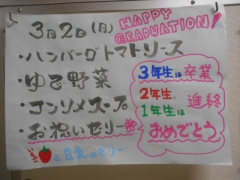 3月20日(月)
HAPPY
GRADUATION!
・ハンバーグトマトソース
・ゆで野菜
・コンソメスープ
・お祝いゼリー
いちごと豆乳のゼリー
3年生は卒業
2年生、
1年生は進級
おめでとう